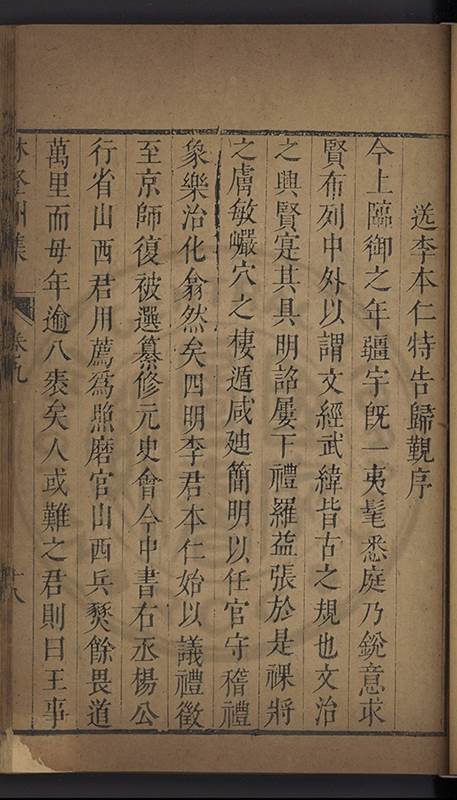 送李本仁特告歸覲序
今上臨御之年疆宇旣一夷髦悉庭乃銳意求
賢布列中外以謂文經武緯皆古之規也文治
之興賢寔其具明詔屢下禮羅益張於是祼將
之膚敏巖穴之棲遁咸廸簡明以任官守稽禮
象樂治化翕然矣四明李君本仁始以議禮徵
至京師復被選纂修元史會今中書右丞楊公
行省山西君用薦爲照磨官山西兵燹餘畏道
萬里而毋年逾八袠矣人或難之君則曰王事
林登州集
卷九
十八